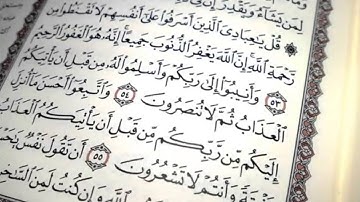 لِمَن يَشَآءُ وَيَقْدِرُ إِنَّ فِى
قُلْ يَٰعِبَادِىَ ٱلَّذِينَ أَسْرَفُوا۟ عَلَىٰٓ أَنفُسِهِمْ لَا تَقْنَطُوا۟ مِن
رَّحْمَةِ ٱللَّهِ إِنَّ ٱللَّهَ يَغْفِرُ ٱلذُّنُوبَ جَمِيعًا إِنَّهُۥ هُوَ ٱلْغَفُورُ ٱلرَّحِيمُ
٥٣ وَأَنِيبُوٓا۟ إِلَىٰ رَبِّكُمْ وَأَسْلِمُوا۟ لَهُۥ مِن قَبْلِ أَن يَأْتِيَكُمُ
ٱلْعَذَابُ ثُمَّ لَا تُنصَرُونَ ٥٤ وَٱتَّبِعُوٓا۟ أَحْسَنَ مَآ أُنزِلَ
إِلَيْكُم مِّن رَّبِّكُم مِّن قَبْلِ أَن يَأْتِيَكُمُ ٱلْعَذَابُ
بَغْتَةً وَأَنتُمْ لَا تَشْعُرُونَ ٥٥ أَن تَقُولَ نَفْسٌ
ٱللَّهِ وَإِن كُنتُ لَمِنَ